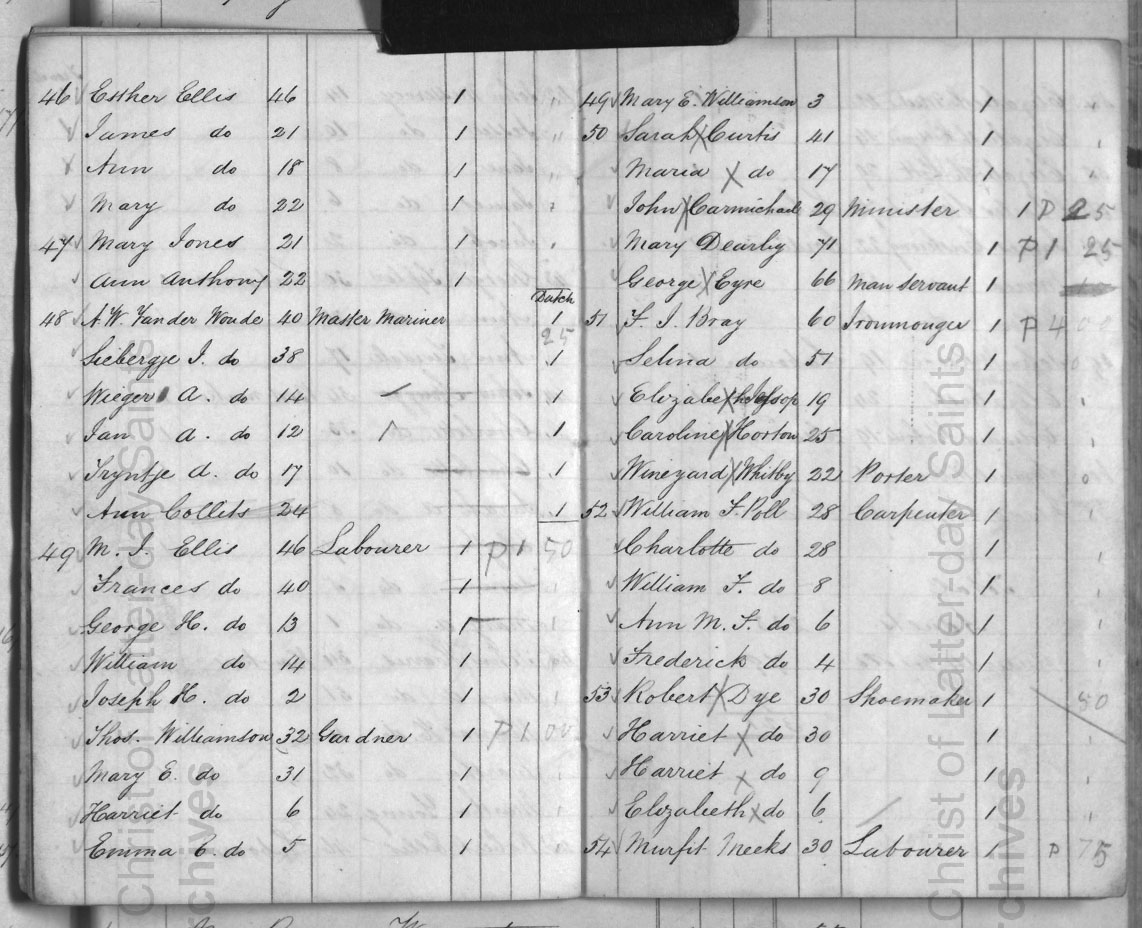 46 Esther Ellis 46 1
James do 21 1
Ann do 18 1
Mary do 22 1
47 Mary Jones 21 1
Ann Anthony 22 1
Dutch
48 A. W. Van der Woude 40 Master Mariner 1
25
Siebergje I. do 38 1
Wieger A. do 14 1
Jan A. do 12 1
Tryntje A. do 17 1
Ann Collits 24 1
49 M. J. Ellis 46 Labourer 1 P 1 50
Frances do 40 1
George H. do 13 1
William do 14 1
Joseph H. do 2 1
Thos. Williamson 32 Gardner 1 P 1 00
Mary E. do 31 1
Harriet do 6 1
Emma E. do 5 1
49 Mary E. Williamson 3 1
50 Sarah Curtis 41 1
Maria do 17 1
John Carmichael 29 Minister 1 P 25
Mary Dearby 71 1 P 1 25
George Eyre 66 Man servant 1
51 F. J. Bray 60 Ironmonger 1 P 4 00
Selina do 51 1
Elizabeth Jessop 19 1
Caroline Horton 25 1
Wineyard Whitby 22 Porter 1
52 William F. Poll 28 Carpenter 1
Charlotte do 28 1
William F. do 8 1
Ann M. F. do 6 1
Frederick do 4 1
53 Robert Dye 30 Shoemaker 1 50
Harriet do 30 1
Harriet do 9 1
Elizabeth do 6 1
54 Murfit Meeks 30 Labourer 1 P 75
Christ of Latter-day Saints
Archives
Christ of Latter-day Saints
Archives